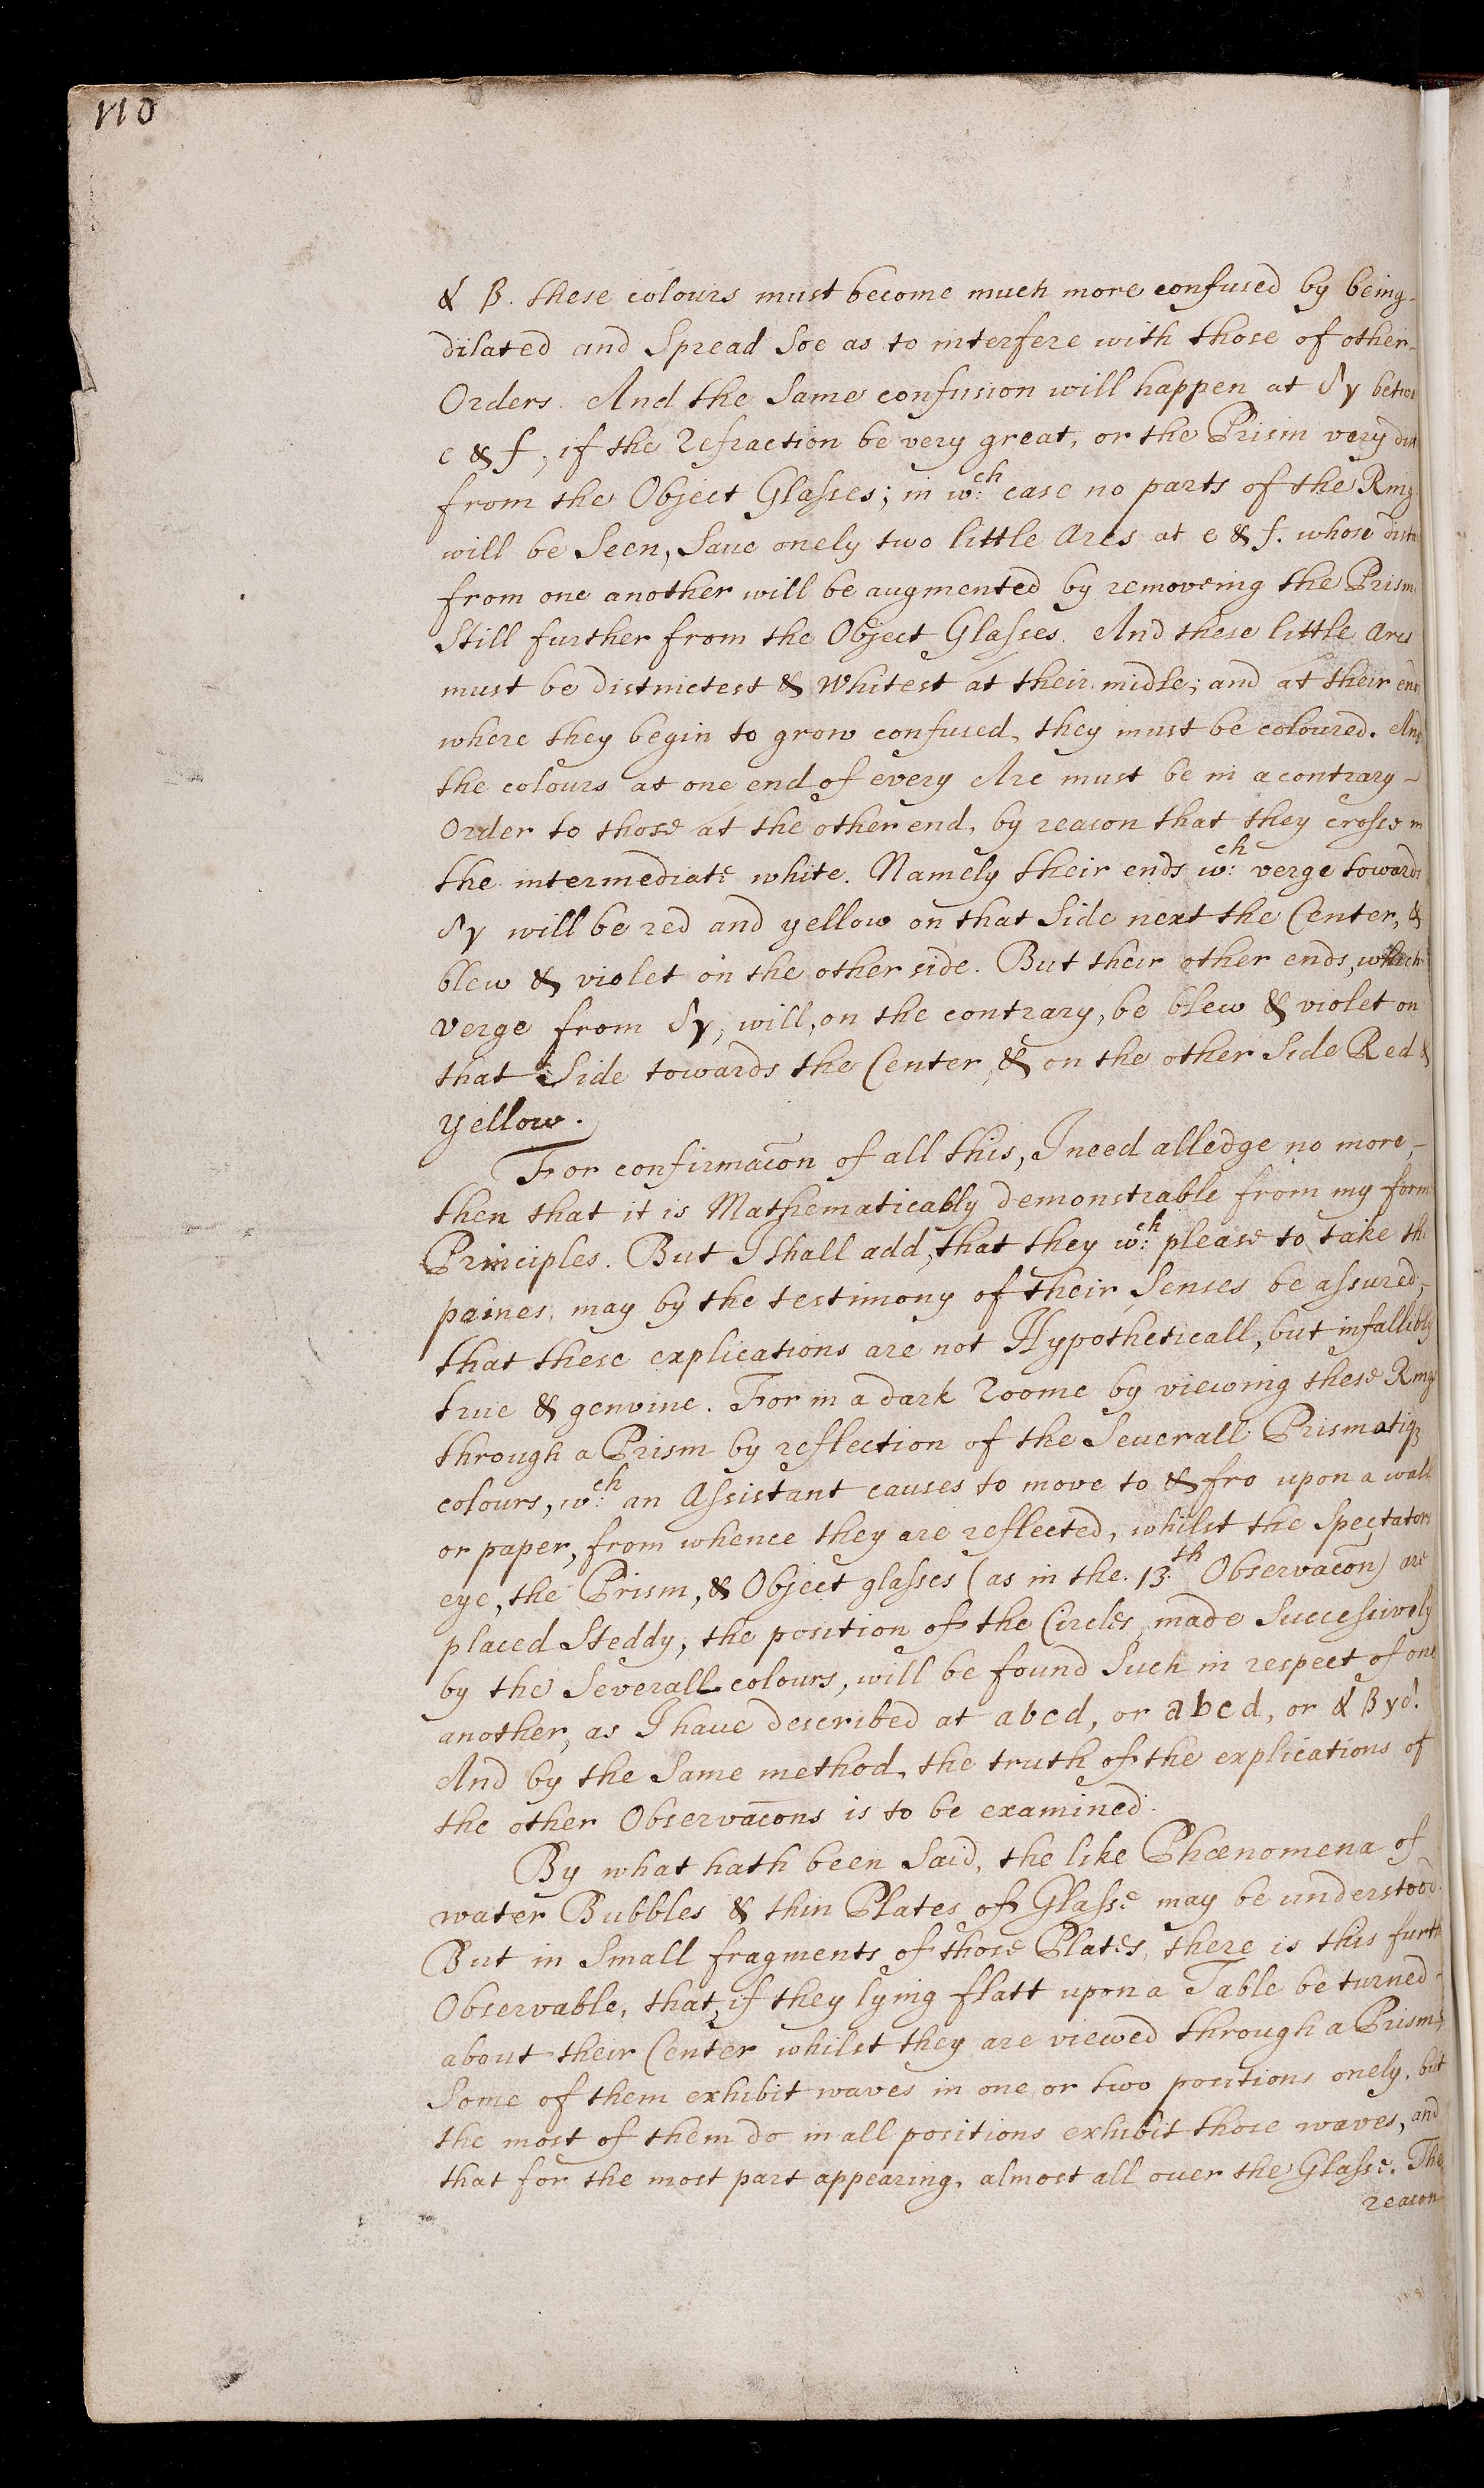 110
α β. these colours must become much more confused by being-
dilated and Spread Soe as to interfere with those of other-
Orders. And the Same confusion will happen at δγ betwe
e & f, if the Refraction be very great, or the Prism very dist
from the Object Glasses; in wch: case no parts of the Ring
will be Seen, Save onely two little Arcs at e & f. whose dista
from one another will be augmented by removeing the Prism
Still further from the Object Glasses. And these little Arcs
must be distnictest & Whitest at their midle; and at their end
where they begin to grow confused, they must be coloured. And
the colours at one end of every Arc must be in a contrary-
Order to those at the other end, by reason that they crosse in
the intermediate white. Namely their ends wch: verge towards
δγ will be red and yellow on that Side next the Center, &
blew & violet on the other side. But their other ends, which
verge from δγ, will, on the contrary, be blew & violet on
that Side towards the Center, & on the other Side Red &
yellow.
For confirmacōn of all this, I need alledge no more,-
then that it is Mathematicably demonstrable from my form
Principles. But I shall add, that they wch: please to take the
paines, may by the testimony of their Senses be assured,-
that these explications are not Hypotheticall, but infallibly
true & genvine. For in a dark Roome by viewing these Rings
through a Prism by reflection of the Severall Prismatiq
colours, wch: an Assistant causes to move to & fro upon a wall
or paper, from whence they are reflected, whilst the Spectators
eye, the Prism, & Object glasses (as in the. 13th. Observacōn) are
placed Steddy, the position of the Circles, made Successively
by the Severall colours, will be found Such in respect of one
another, as I have described at abcd, or abcd, or αβγδ.
And by the Same method, the truth of the explications of
the other Observacōns is to be examined.
By what hath been Said, the like Phœnomena of
water Bubbles & thin Plates of Glasse may be understood.
But in Small fragments of those Plates, there is this furth
Observable, that, if they lying flatt upon a Table be turned-
about their Center whilst they are viewed through a Prism,
Some of them exhibit waves in one or two positions onely, but
the most of them do in all positions exhibit those waves, and
that for the most part appearing, almost all over the Glasse. The
reason